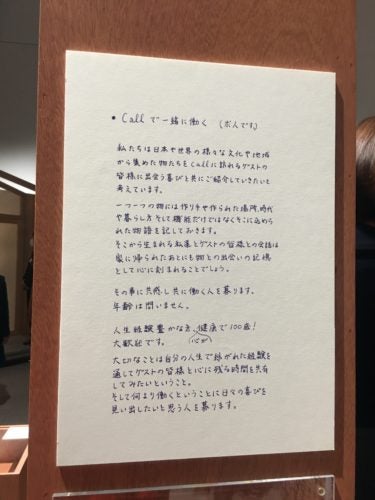 • Call で一緒に働く (求人です)
私たちは日本や世界の様々な文化や地域
から集めた物たちをCallに訪れるゲストの
皆様に出会う喜びと共にご紹介していきたいと
考えています。
一つ一つの物には作り手や作られた場所、時代
や暮らし方そして機能だけではなくそこに込めら
れた物語を記しておきます。
そこから生まれる私達とゲストの皆様との会話は
家に帰られたあとにも物との出会いの記憶
として心に刻まれることでしょう。
その事に共感し共に働く人を募ります。
年齢は問いません。
人生経験豊かな方、健康で100歳!
心が
大歓迎です。
大切なことは自分の人生で培がれた経験を
通してゲストの皆様と心に残る時間を共有
してみたいということ。
そして何より働くということに日々の喜びを
見い出したいと思う人を募ります。